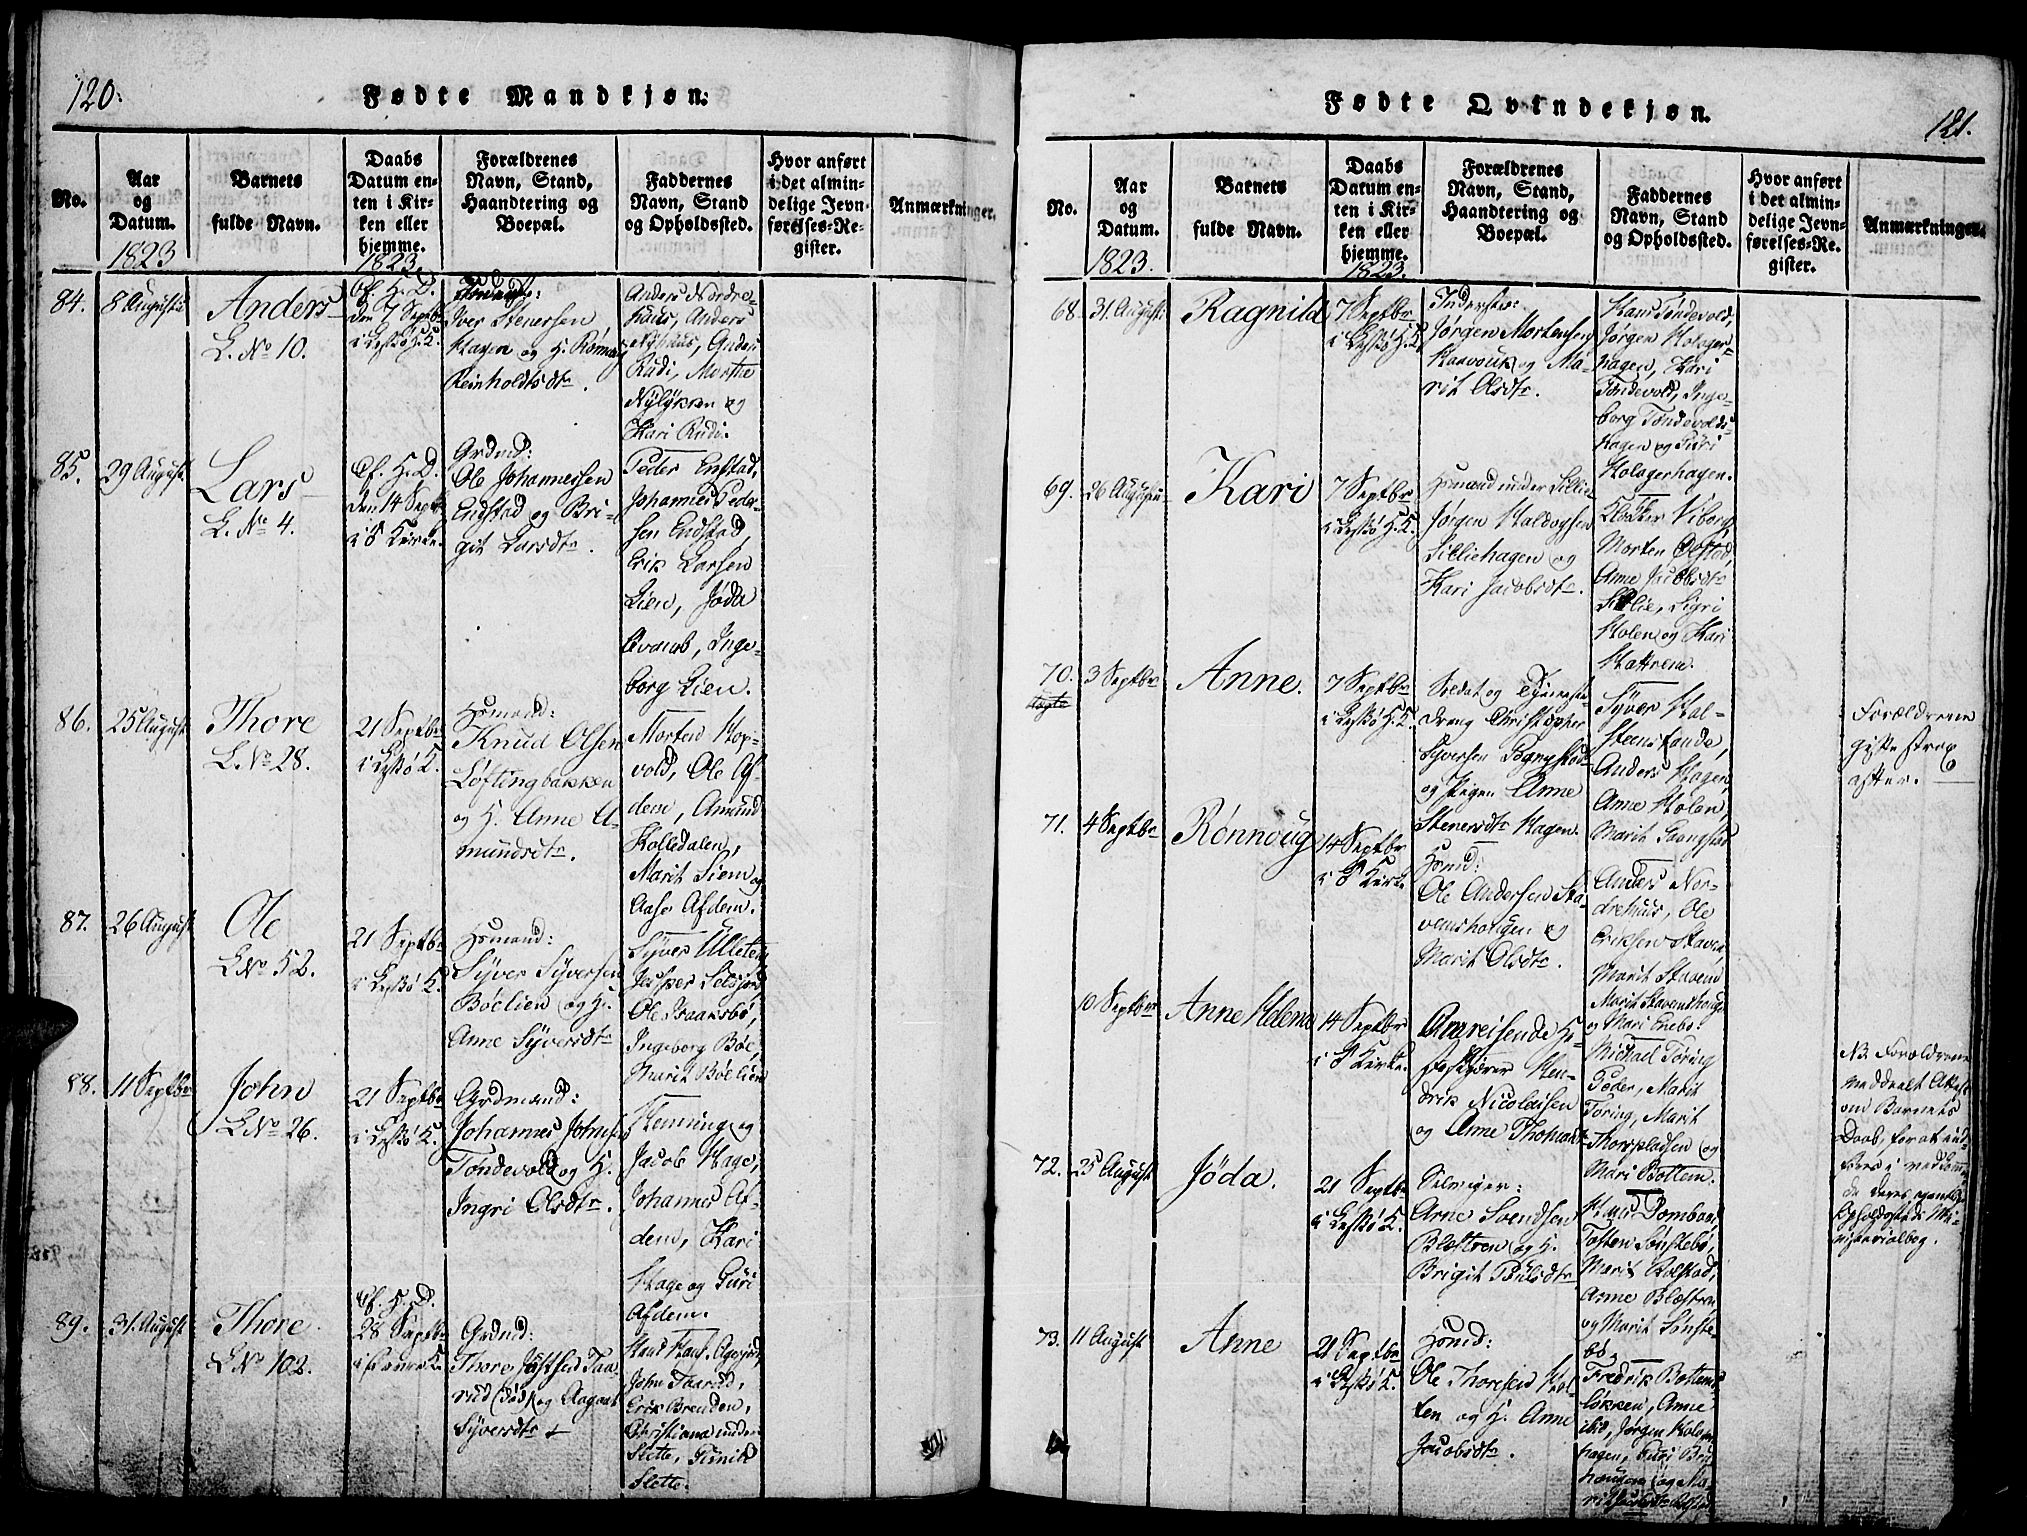 120.
Fødte Mandkjøn.
No.
Aar
og
Datum.
1823
Barnets
fulde Navn.
Daabs
Datum en-
ten i Kir-
ken eller
hjemme.
1823.
Forældrenes
Navn, Stand,
Haandtering og
Boepæl.
Faddernes
Navn, Stand
og Opholdssted.
Hvor anført
i det almin-
delige Jevn-
førelses-Re-
gister.
Anmærkninger.
84.
8 Augusti
Anders
L. No 10.
Cf. H. D.
den 7 Septbr
i Lesjø H. K.
Iver Stenersen
Hagen og H. Rønnou
Reinholdtsdtr.
Anders Nordre-
huus, Anders
Nyhuus, Anders
Rudi, Marthe
Nylykken og
Kari Rudi.
85.
29 August
Lars
L. No 4.
Cf. H. D.
den 14 Septbr
i Kirke.
Grdmd:
Ole Johannessen
Endstad og Bri-
git Larsdtr.
Peder Endstad,
Johannes Peder-
sen Endstad,
Erik Larsen
Lien, Jøda
Inge-
borg Lien.
86.
25 August
Thore
L. No 28.
21 Septbr
i Lesjø K.
Husmand:
Knud Olsen
Løftingbakken
og H. Anne A-
mundsdtr.
Morten Hop-
vold, Ole Af-
dem, Amund
Kolledalen,
Marit Liem og
Aase Afdem.
87.
26 August
Ole
L No 52.
21 Septbr
i Lesjø K.
Husmand:
Syver Syversen
Bøelien og H.
Anne Syversdtr
Syver Ulleten
Jesper Selsjord
Ole Isaaksbø,
Ingeborg Bøe,
Marit Bøelien
88.
11 Septbr
John
L No 26.
21 Septbr
i Lesjø K.
Grdmand:
Johannes Johnsen
Tøndevold og H.
Ingri Olsdtr.
Flemming og
Jacob Hage,
Johannes Af-
dem, Kari
Hage og Guri
Afdem.
89.
31 August
Thore
L No 102.
Cf. H. D.
28 Septbr
Grdmd:
Thore Taa-
rud (død) og Aagaat
Syversdtr
John Taarud,
Erik Brenden,
Christiana under
Slette,
Slette.
Fødte Qvindekjøn.
121.
No.
Aar
og
Datum.
1823.
Barnets
fulde Navn.
Daabs
Datum en-
ten i Kir-
ken eller
hjemme.
1823.
Forældrenes
Navn, Stand,
Haandtering og
Boepæl.
Faddernes
Navn, Stand
og Opholdssted.
Hvor anført
i det almin-
delige Jevn-
førelses-Re-
gister.
Anmærkninger.
68.
31 August
Ragnild
7 Septbr
i Lesjø H. K.
Inderster:
Jørgen Mortensen
og Ma-
rit Olsdtr.
Hans Tøndevold,
Jørgen Holager-
hagen, Kari
Tøndevold, Inge-
borg Tøndevolds-
hagen og Guri
Holagerhagen.
69.
26 August
Kari
7 Septbr
i Lesjø H. K.
Husmand under Lillie
Jørgen Haldorsen
Lilliehagen og
Kari Jacobsdtr.
Klokker Viborg
Morten
Anne Jacobsdtr
Lillie, Sigri
Holen og Kari
Hattrem.
70.
3 Septbr
Anne.
7 Septbr
i Lesjø H. K.
Soldat og Tjeneste-
dreng Christopher
Syversen
og Pigen Anne
Stenersdtr Hagen.
Syver Hal-
steensrande,
Anders Hagen,
Anne Holen,
Marit
Forældrene
gifte strax
efter.
71.
4 Septbr
Rønnoug
14 Septbr
i Kirke.
Husmd:
Ole Andersen Sta-
venshougen og
Marit Olsdtr.
Anders Nor-
drehuus, Ole
Eriksen Staven,
Marit Stavem
Marit Stavenshougen
og Mari Enebo.
10 Septbr
Anne Helene
14 Septbr
i Kirke.
Omreisende
Hen-
drik Nicolaisen
og Anne Thomasdtr
Michael Tøring
Peder, Marit
Tøring, Marit
Thorspladsen og
Mari Bottem.
NB. Forældrene
meddeelt Attest
om Barnets
Daab, for at ind-
føres i vedkommen-
de deres
Opholdssteds Mi-
nisterialbog.
72.
25 August
Jøda.
21 Septbr
i Lesjø K.
Selveier:
Arne Svendsen
Blæstren og H.
Brigit Poulsdtr
Dombaas,
Tosten Sønstebø,
Marit Rolstad,
Anne Blæstren
og Marit Sønste-
bø.
73.
11 August
Anne
21 Septbr
i Lesjø K.
Husmd:
Ole Thoresen
og H. Anne
Jacobsdtr.
Fredrik Bottems-
løkken, Anne
Jørgen Holem-
hagen, Guri
og Ma-